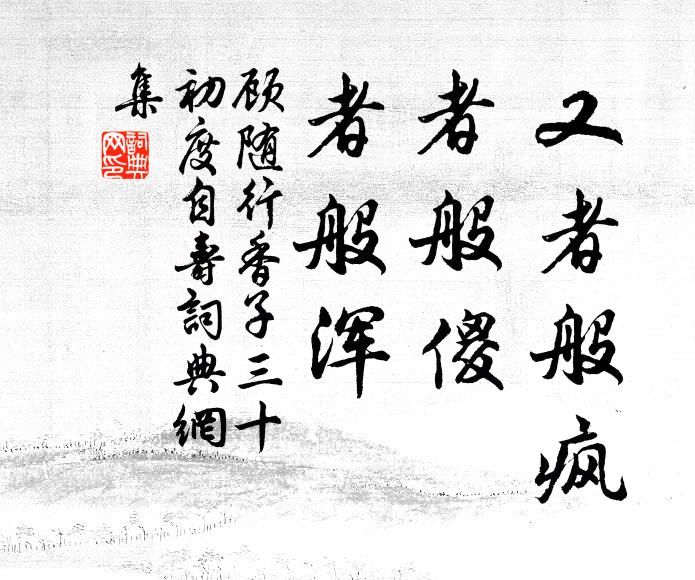 又者般疯
者般傻
者般浑
顾随行香子三十
初度自寿詞典網
集
詞典
网印